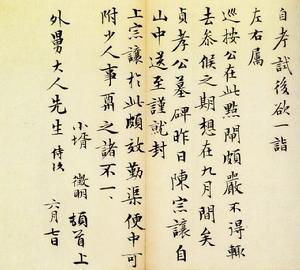 自孝試後欲一詣
左右屬
巡按公在此點閘頗嚴不得輒
去參候之期想在九月間矣
貞孝公墓碑昨日陳宗讓自
山中送至謹就封
上宗讓於此頗效勤渠便中可
附少人事耎之諸不一、
外舅大人先生 侍次
小壻 徵明 頓首上
六月七日